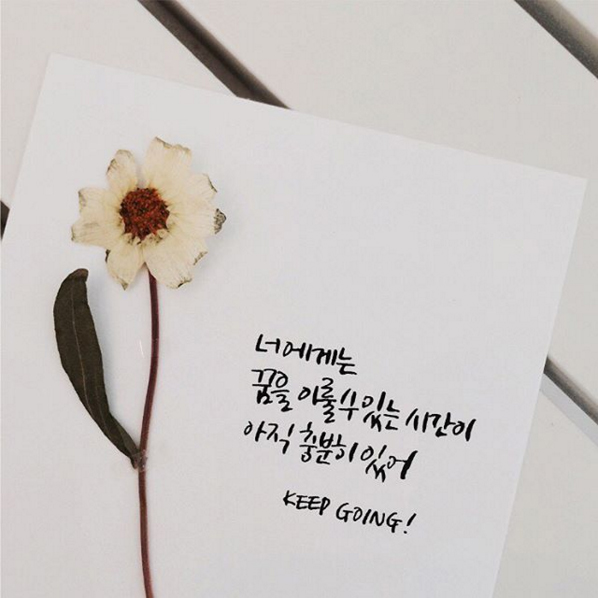 너에게는
꿈을 이룰수있는 시간이
아직 충분히 있어
KEEP GOING!